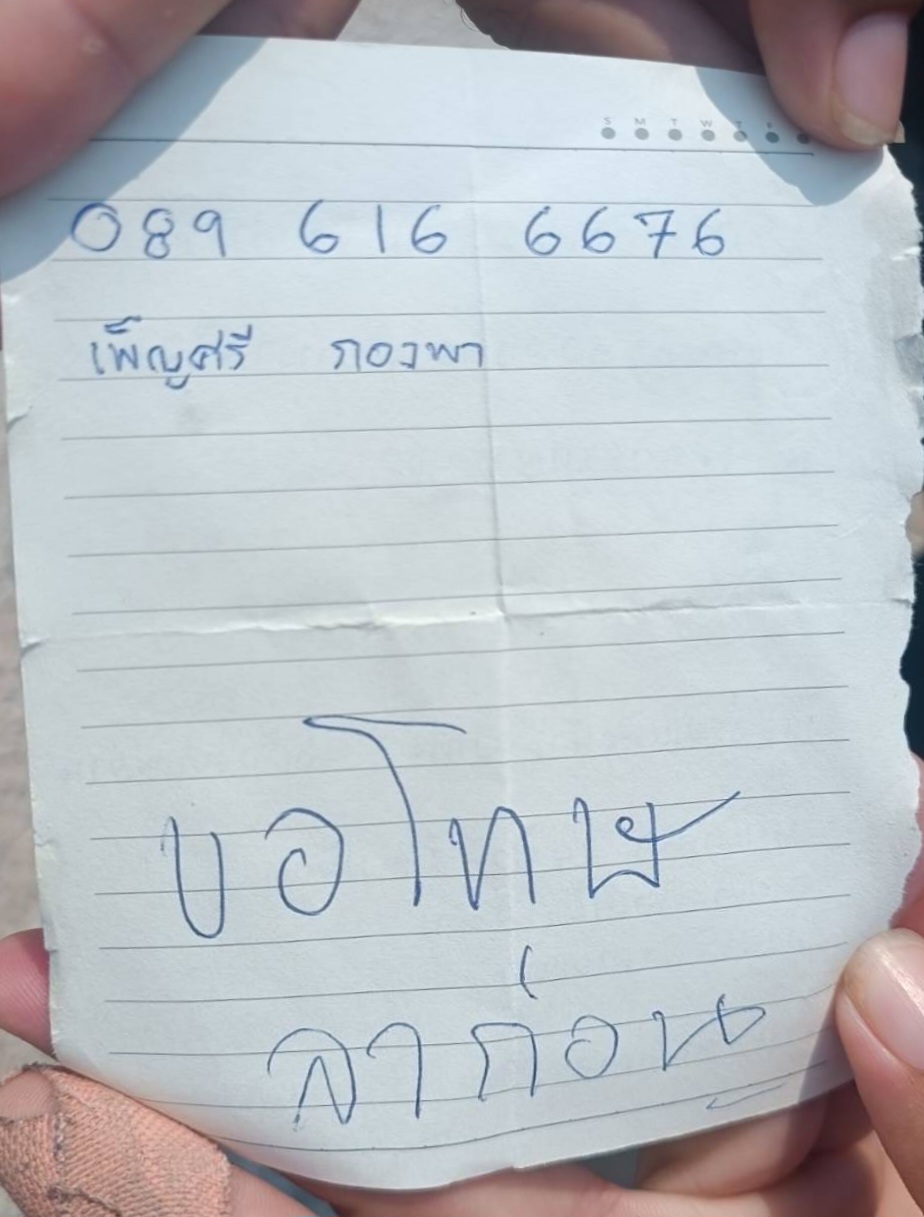 S M T W T F
089 616 6676
เพ็ญศรี กองพา
ขอโทษ
ลาก่อน